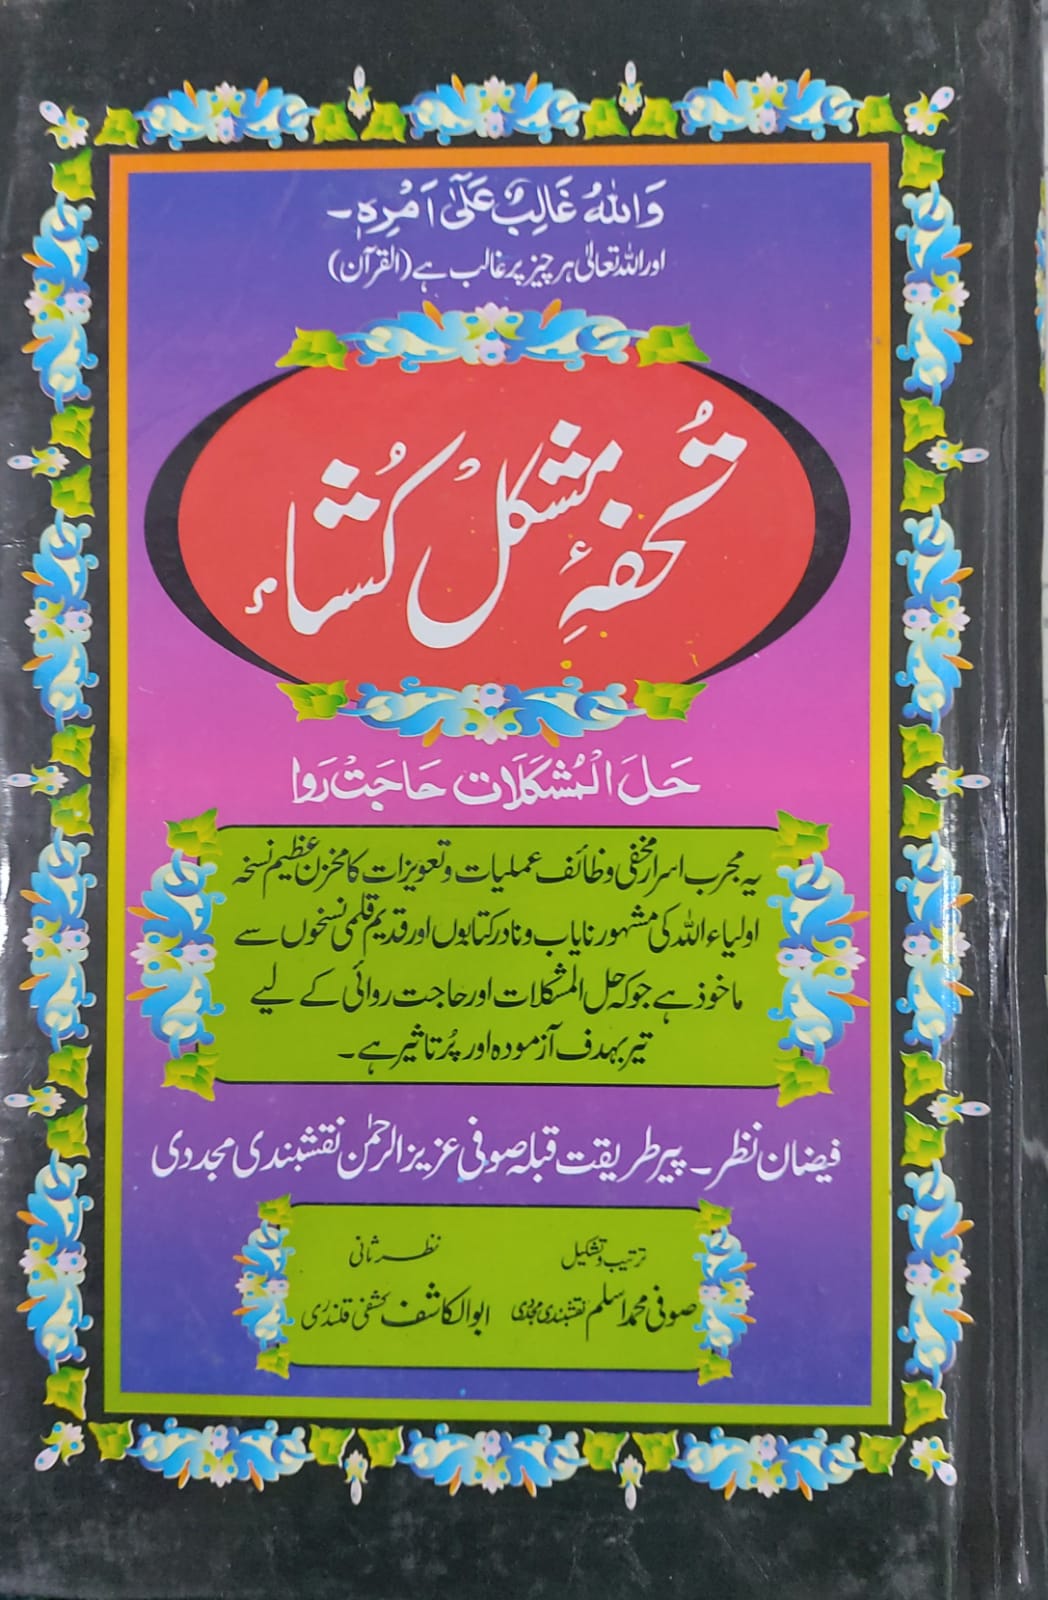 وَاللهُ غَالِبٌ عَلٰٓى اَمْرِهٖ۔
اور اللہ تعالیٰ ہر چیز پر غالب ہے (القرآن)
تُحفۂِ مشکل کُشاء
حَلَ الْمُشکَلَات حَاجَتْ رَوا
یہ مجرب اسرار مخفی وظائف عملیات و تعویزات کا مخزن عظیم نسخہ
اولیاء اللہ کی مشہور نایاب و نادر کتابوں اور قدیم قلمی نسخوں سے
ماخوذ ہے جو کہ حل المشکلات اور حاجت روائی کے لیے
تیر بہدف آزمودہ اور پُر تاثیر ہے۔
فیضان نظر۔ پیر طریقت قبلہ صوفی عزیز الرحمٰن نقشبندی مجددی
ترتیب و تشکیل
صوفی محمد اسلم نقشبندی مجددی
نظر ثانی
ابوالکاشف کشفی قلندری